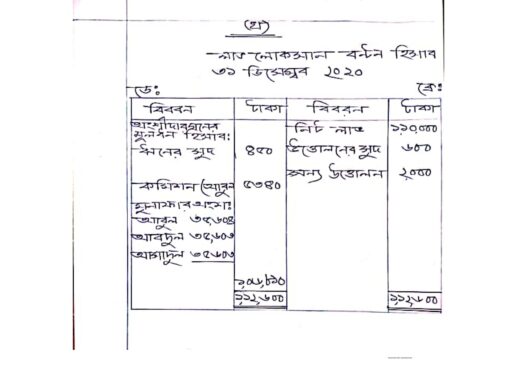 (খ)
লাভ লোকসান বন্টন হিসাব
৩১ ডিসেম্বর ২০২০
ডে: ক্রে:
বিবরন টাকা বিবরন টাকা
অংশীদারগনের নিট লাভ ১১০,০০০
মূলধন হিসাব:
ঋনের সুদ ৪৫০ উত্তোলনের সুদ ৬০০
পন্য উত্তোলন ২,০০০
কমিশন (আবুল) ৫৩৪০
মুনাফার অংশ:
আবুল ৩৫,৬০৪
আবদুল ৩৫,৬০৩
আসাদুল ৩৫৬০৩
১০৬,৮১০
১১২,৬০০ ১১২,৬০০